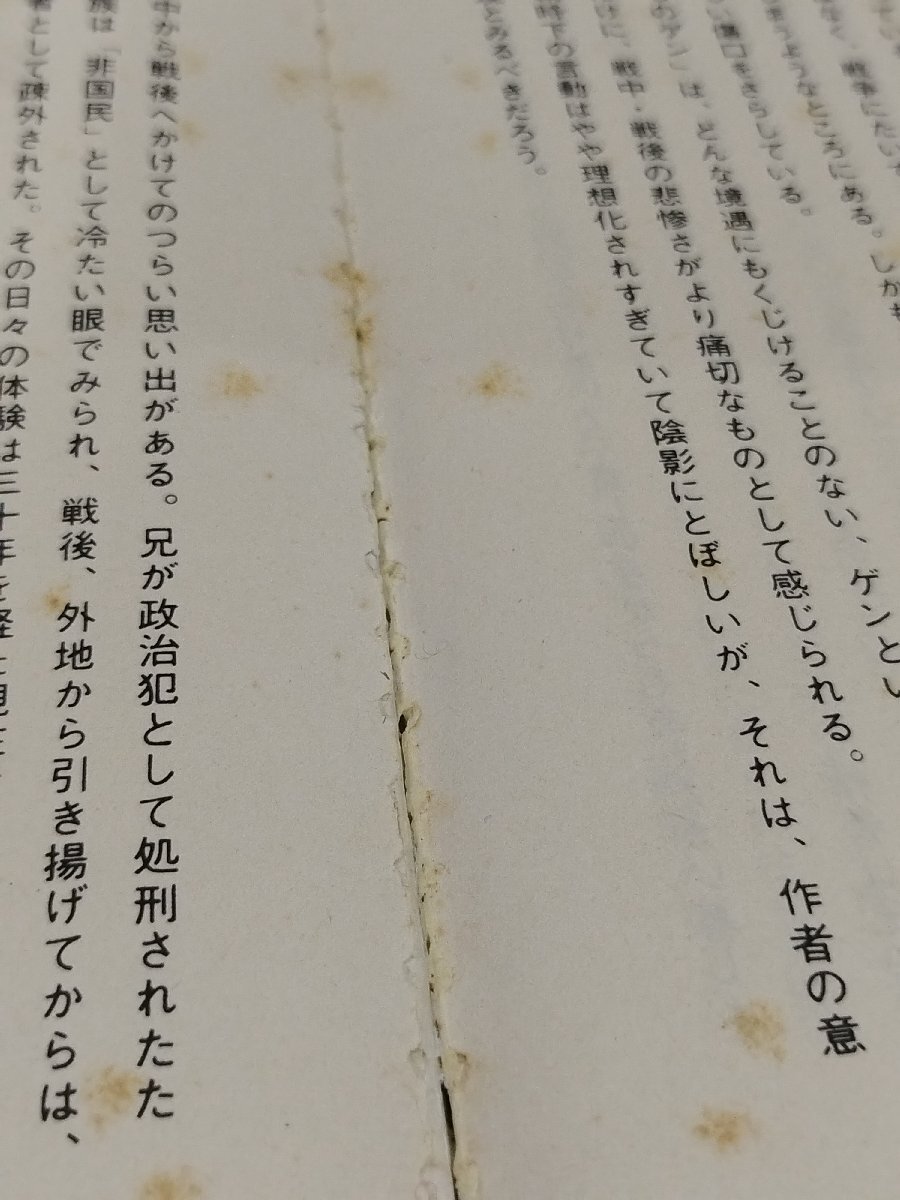 戦争にたいして
ようなところにある。しかも
い傷口をさらしている。
は、どんな境遇にもくじけることのない、ゲンとい
に、戦中・戦後の悲惨さがより痛切なものとして感じられる。
時下の言動はやや理想化されすぎていて陰影にとぼしいが、それは、作者の意
とみるべきだろう。
中から戦後へかけてのつらい思い出がある。兄が政治犯として処刑されたた
族は「非国民」として冷たい眼でみられ、戦後、外地から引き揚げてからは、
者として疎外された。その日々の体験は三十年を経た現在